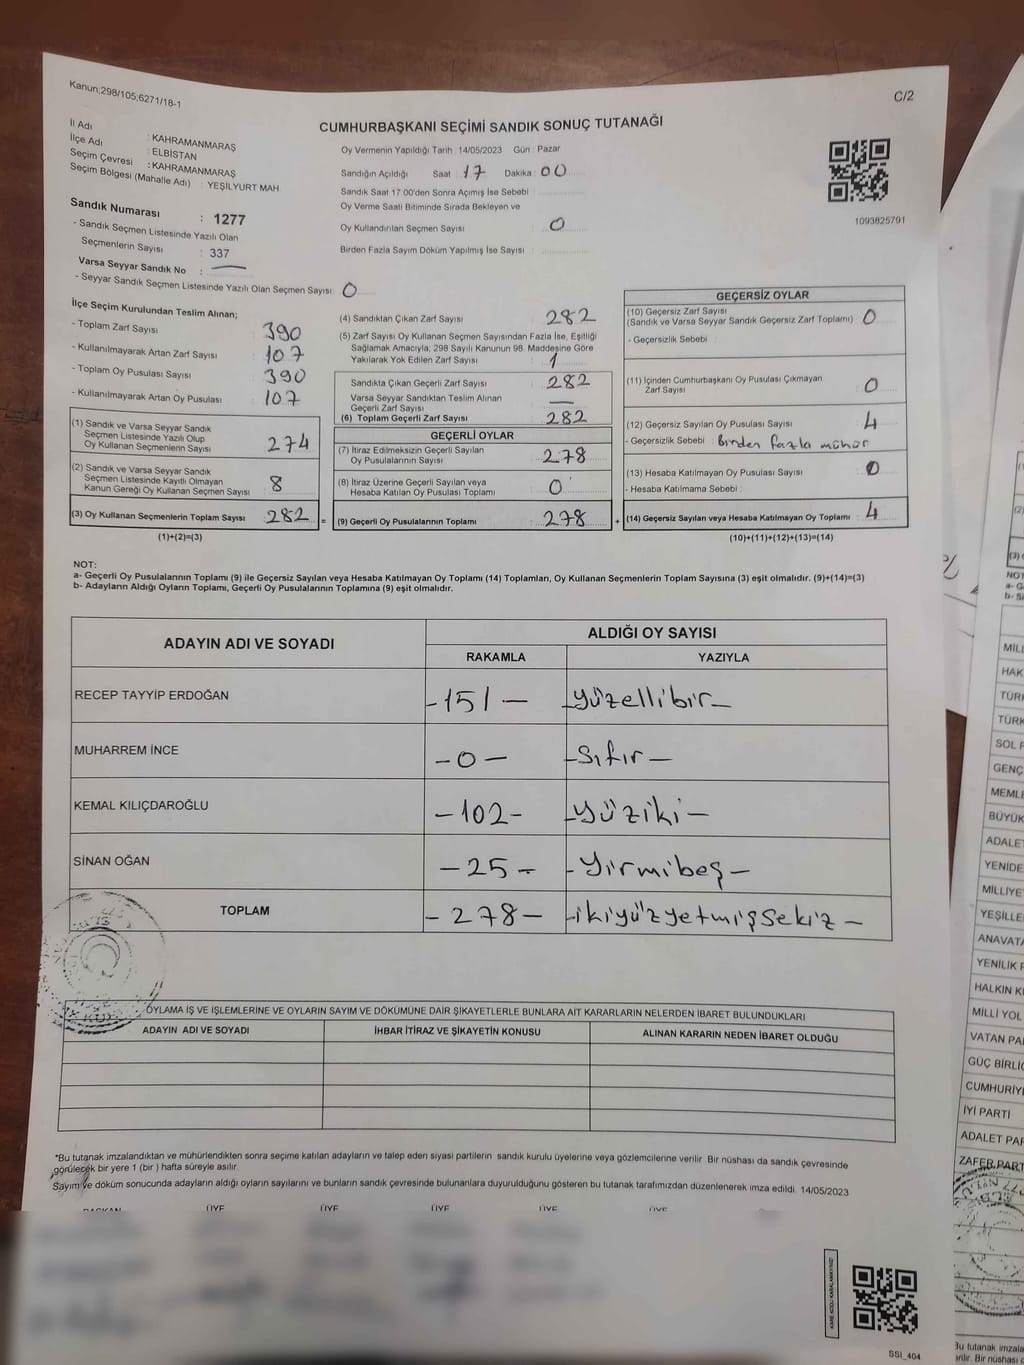 Kanun;298/105;6271/18-1
C/2
CUMHURBAŞKANI SEÇİMİ SANDIK SONUÇ TUTANAĞI
İl Adı : KAHRAMANMARAŞ
İlçe Adı : ELBİSTAN
Seçim Çevresi : KAHRAMANMARAŞ
Seçim Bölgesi (Mahalle Adı) : YEŞİLYURT MAH
Sandık Numarası : 1277
- Sandık Seçmen Listesinde Yazılı Olan
Seçmenlerin Sayısı : 337
Varsa Seyyar Sandık No :
- Seyyar Sandık Seçmen Listesinde Yazılı Olan Seçmen Sayısı: 0
Oy Vermenin Yapıldığı Tarih : 14/05/2023 Gün : Pazar
Sandığın Açıldığı Saat : 17 Dakika : 00
Sandık Saat 17.00'den Sonra Açımış İse Sebebi :
Oy Verme Saati Bitiminde Sırada Bekleyen ve
Oy Kullandırılan Seçmen Sayısı : 0
Birden Fazla Sayım Döküm Yapılmış İse Sayısı :
1093825791
İlçe Seçim Kurulundan Teslim Alınan;
- Toplam Zarf Sayısı 390
- Kullanılmayarak Artan Zarf Sayısı 107
- Toplam Oy Pusulası Sayısı 390
- Kullanılmayarak Artan Oy Pusulası 107
(1) Sandık ve Varsa Seyyar Sandık
Seçmen Listesinde Yazılı Olup
Oy Kullanan Seçmenlerin Sayısı 274
(2) Sandık ve Varsa Seyyar Sandık
Seçmen Listesinde Kayıtlı Olmayan
Kanun Gereği Oy Kullanan Seçmen Sayısı 8
(3) Oy Kullanan Seçmenlerin Toplam Sayısı 282 =
(1)+(2)=(3)
(4) Sandıktan Çıkan Zarf Sayısı 282
(5) Zarf Sayısı Oy Kullanan Seçmen Sayısından Fazla İse, Eşitliği
Sağlamak Amacıyla, 298 Sayılı Kanunun 98. Maddesine Göre
Yakılarak Yok Edilen Zarf Sayısı : 1
Sandıkta Çıkan Geçerli Zarf Sayısı : 282
Varsa Seyyar Sandıktan Teslim Alınan
Geçerli Zarf Sayısı :
(6) Toplam Geçerli Zarf Sayısı : 282
GEÇERLİ OYLAR
(7) İtiraz Edilmeksizin Geçerli Sayılan
Oy Pusulalarının Sayısı : 278
(8) İtiraz Üzerine Geçerli Sayılan veya
Hesaba Katılan Oy Pusulası Toplamı : 0
(9) Geçerli Oy Pusulalarının Toplamı : 278 +
GEÇERSİZ OYLAR
(10) Geçersiz Zarf Sayısı
(Sandık ve Varsa Seyyar Sandık Geçersiz Zarf Toplamı) : 0
- Geçersizlik Sebebi :
(11) İçinden Cumhurbaşkanı Oy Pusulası Çıkmayan
Zarf Sayısı : 0
(12) Geçersiz Sayılan Oy Pusulası Sayısı : 4
- Geçersizlik Sebebi : Birden fazla mühür
(13) Hesaba Katılmayan Oy Pusulası Sayısı : 0
- Hesaba Katılmama Sebebi :
(14) Geçersiz Sayılan veya Hesaba Katılmayan Oy Toplamı : 4
(10)+(11)+(12)+(13)=(14)
NOT:
a- Geçerli Oy Pusulalarının Toplamı (9) ile Geçersiz Sayılan veya Hesaba Katılmayan Oy Toplamı (14) Toplamları, Oy Kullanan Seçmenlerin Toplam Sayısına (3) eşit olmalıdır. (9)+(14)=(3)
b- Adayların Aldığı Oyların Toplamı, Geçerli Oy Pusulalarının Toplamına (9) eşit olmalıdır.
ADAYIN ADI VE SOYADI
ALDIĞI OY SAYISI
RAKAMLA YAZIYLA
RECEP TAYYİP ERDOĞAN -151- -yüzellibir-
MUHARREM İNCE -0- -sıfır-
KEMAL KILIÇDAROĞLU -102- -yüziki-
SİNAN OĞAN -25- -yirmibeş-
TOPLAM -278- -ikiyüzyetmişsekiz-
OYLAMA İŞ VE İŞLEMLERİNE VE OYLARIN SAYIM VE DÖKÜMÜNE DAİR ŞİKAYETLERLE BUNLARA AİT KARARLARIN NELERDEN İBARET BULUNDUKLARI
ADAYIN ADI VE SOYADI İHBAR İTİRAZ VE ŞİKAYETİN KONUSU ALINAN KARARIN NEDEN İBARET OLDUĞU
*Bu tutanak imzalandıktan ve mühürlendikten sonra seçime katılan adayların ve talep eden siyasi partilerin sandık kurulu üyelerine veya gözlemcilerine verilir. Bir nüshası da sandık çevresinde
görülecek bir yere 1 (bir) hafta süreyle asılır.
Sayım ve döküm sonucunda adayların aldığı oyların sayılarını ve bunların sandık çevresinde bulunanlara duyurulduğunu gösteren bu tutanak tarafımızdan düzenlenerek imza edildi. 14/05/2023
BAŞKAN ÜYE ÜYE ÜYE ÜYE ÜYE
KARE KODU KARALAMAYINIZ!
SSI_404
NOT
MİLL
HAK
TÜRK
TÜRK
SOL P
GENÇ
MEMLE
BÜYÜK
ADALET
YENİDE
MİLLİYET
YEŞİLLE
ANAVATA
YENİLİK P
HALKIN KU
MİLLİ YOL
VATAN PA
GÜÇ BİRLİĞ
CUMHURİY
İYİ PARTİ
ADALET PAR
ZAFER PART
Bu tutanak imzala
erilir. Bir nüshası